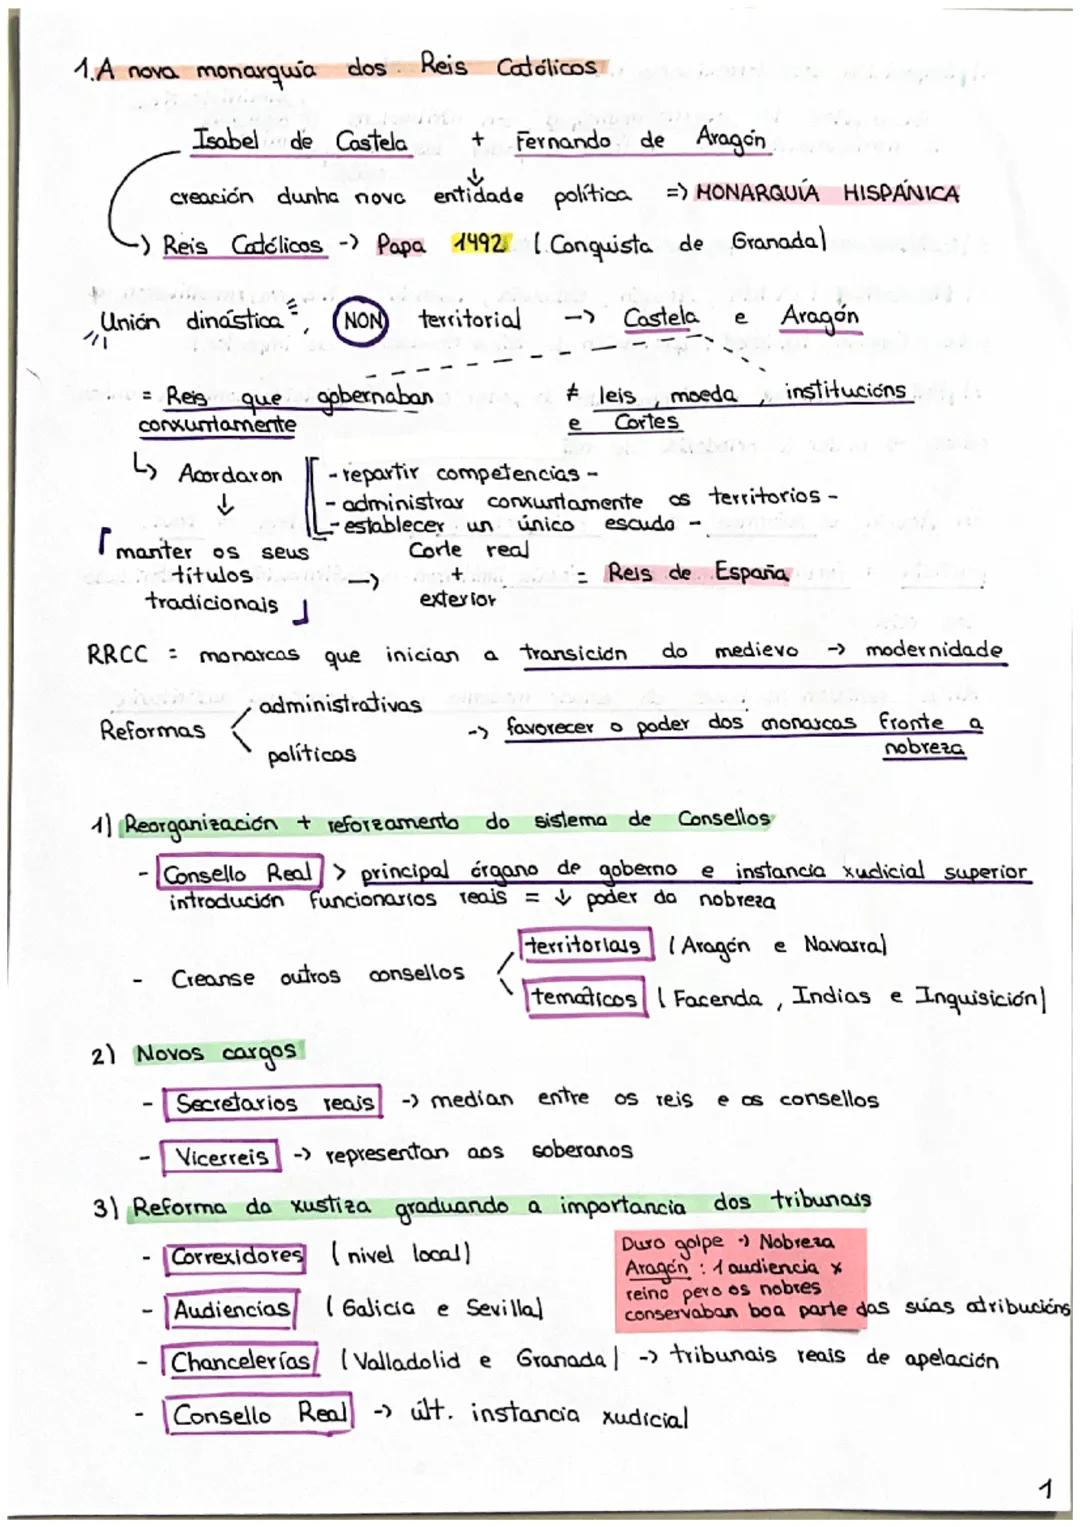 1. A nova monarquía dos Reis Católicos
Isabel de Castela + Fernando de Aragón
↓
creación dunha nova entidade política => MONARQUÍA HISPÁNICA
-> Reis Católicos -> Papa 1492 (Conquista de Granada)
"Unión dinástica", NON territorial -> Castela e Aragón
= Reis que gobernaban ≠ leis, moeda, institucións
conxuntamente e Cortes
↳ Acordaron - repartir competencias -
↓ - administrar conxuntamente os territorios -
- establecer un único escudo -
manter os seus Corte real
títulos -> + = Reis de España
tradicionais exterior
RRCC = monarcas que inician a transición do medievo -> modernidade
administrativas
Reformas -> favorecer o poder dos monarcas fronte a
políticas nobreza
1) Reorganización + reforzamento do sistema de Consellos
- Consello Real > principal órgano de goberno e instancia xudicial superior
introdución funcionarios reais = ↓ poder da nobreza
territoriais (Aragón e Navarra)
- Creanse outros consellos
temáticos (Facenda, Indias e Inquisición)
2) Novos cargos
- Secretarios reais -> median entre os reis e os consellos
- Vicerreis -> representan aos soberanos
3) Reforma da xustiza graduando a importancia dos tribunais
- Correxidores (nivel local)
Duro golpe -> Nobreza
Aragón: 1 audiencia x
reino pero os nobres
conservaban boa parte das súas atribucións
- Audiencias (Galicia e Sevilla)
- Chancelerías (Valladolid e Granada) -> tribunais reais de apelación
- Consello Real -> últ. instancia xudicial
1